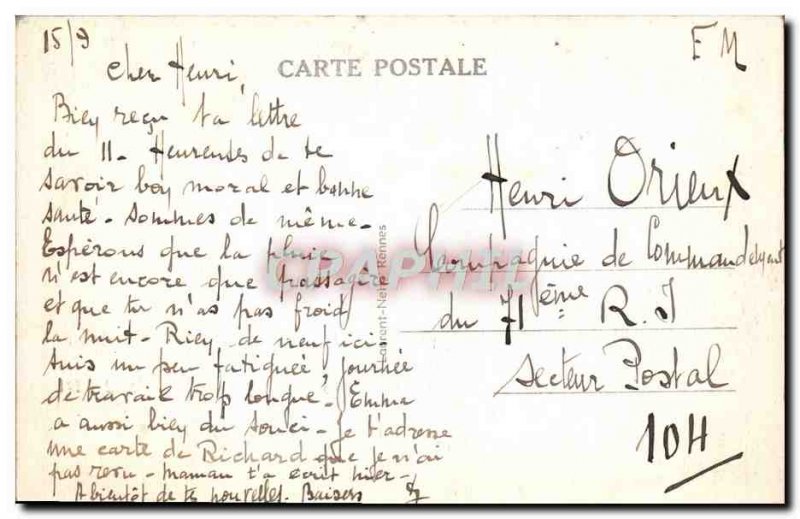 15/9
F M
CARTE POSTALE
Cher Henri,
Bien reçu ta lettre
du 11 - Heureuses de te
savoir bon moral et bonne
santé - Sommes de même -
Espérons que la pluie
n'est encore que passagère
et que tu n'as pas froid
la nuit - Rien de neuf ici
suis un peu fatiguée, journée
de travail trop longue - Emma
a aussi bien du souci - je t'adresse
une carte de Richard que je n'ai
pas revu - Maman t'a écrit hier -
A bientôt de tes nouvelles. Baisers
Laurent-Nel, Rennes
CPAPHIL
Henri Orieux
Compagnie de Commandement
du 71ème R.I
Secteur Postal
104